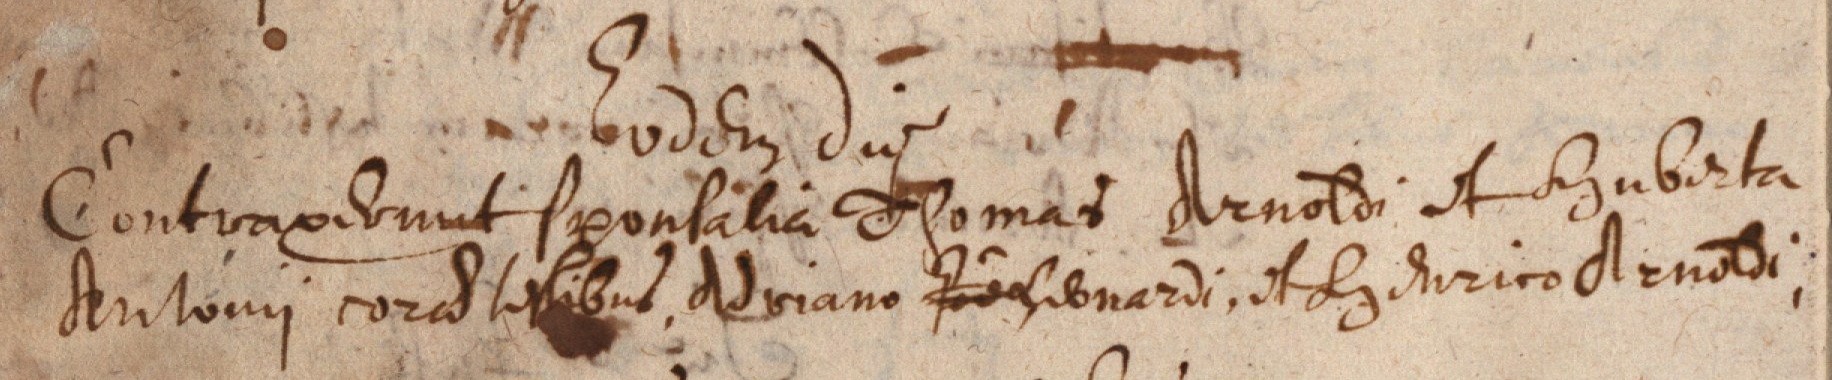 Eodem die
Contraxerunt sponsalia Thomas Arnoldi et Huberta
Antonij corā testibus, Adriano Leonardi, et Henrico Arnoldi,